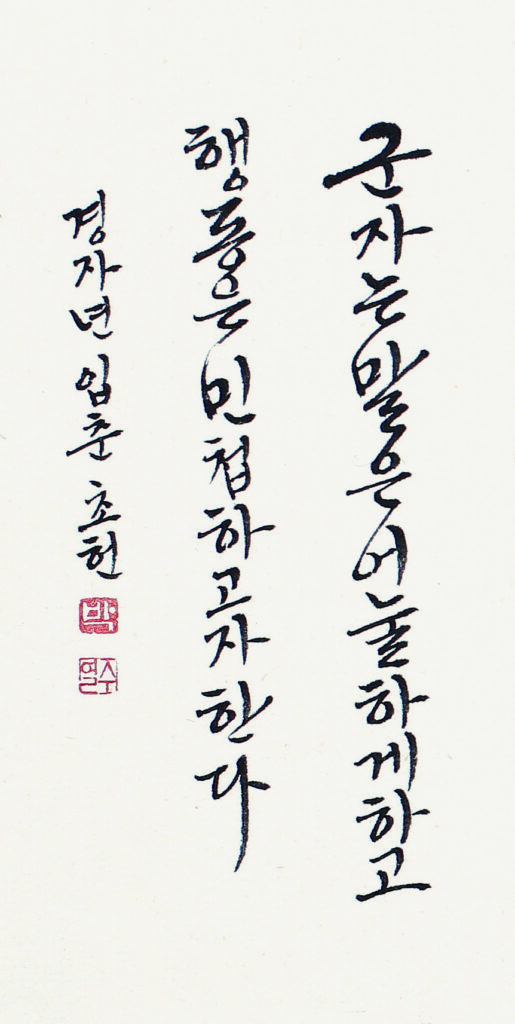 군자는 말은 어눌하게 하고
행동은 민첩하고자 한다
경자년 입춘 초헌
박
수열